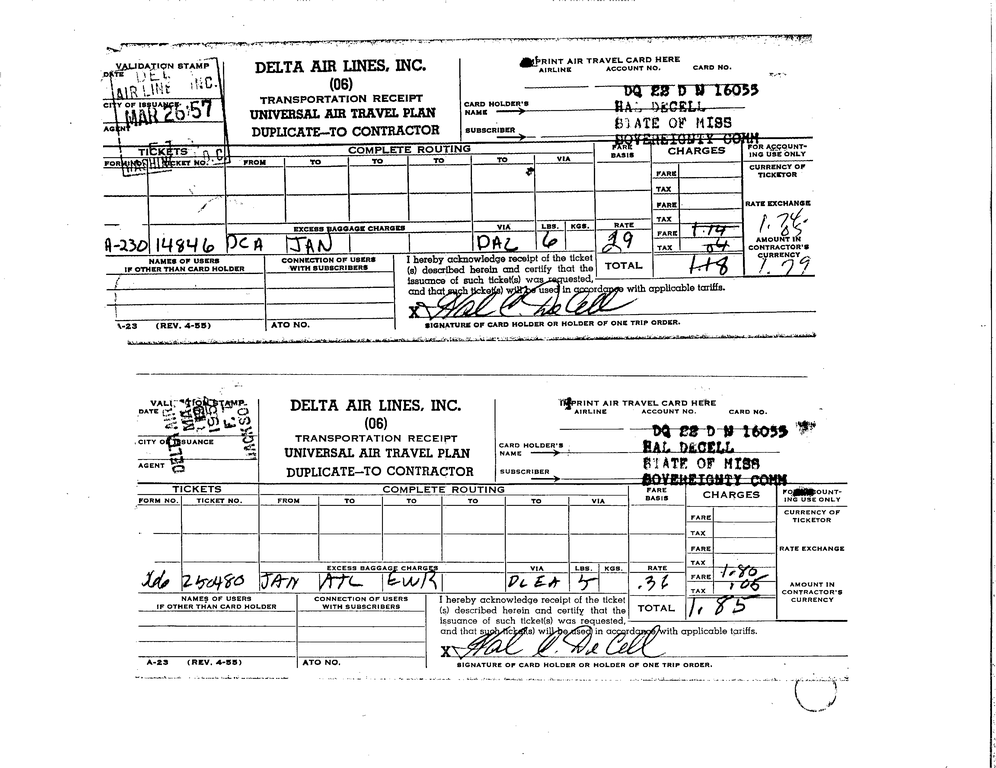 VALIDATION STAMP
DATE
DEL
AIR LINE INC.
CITY OF ISSUANCE
MAR 26 '57
AGENT
DELTA AIR LINES, INC.
(06)
TRANSPORTATION RECEIPT
UNIVERSAL AIR TRAVEL PLAN
DUPLICATE—TO CONTRACTOR
PRINT AIR TRAVEL CARD HERE
AIRLINE ACCOUNT NO. CARD NO.
DQ 22 D N 16055
CARD HOLDER'S NAME
HAL DECELL
STATE OF MISS
SUBSCRIBER
SOVEREIGNTY COMM
TICKETS
COMPLETE ROUTING
FARE BASIS
CHARGES
FOR ACCOUNTING USE ONLY
TICKET NO. FROM TO TO TO TO VIA
CURRENCY OF TICKETOR
FARE
TAX
FARE
RATE EXCHANGE
TAX
EXCESS BAGGAGE CHARGES VIA LBS. KGS. RATE
A-230 14846 DCA JAN DAL 6 29
FARE 1.14
TAX 04
1.74
05
AMOUNT IN CONTRACTOR'S CURRENCY
TOTAL 1.18
1.79
NAMES OF USERS
IF OTHER THAN CARD HOLDER
CONNECTION OF USERS
WITH SUBSCRIBERS
I hereby acknowledge receipt of the ticket
(s) described herein and certify that the
issuance of such ticket(s) was requested,
and that such ticket(s) will be used in accordance with applicable tariffs.
X Hal C. DeCell
-23 (REV. 4-55) ATO NO. SIGNATURE OF CARD HOLDER OR HOLDER OF ONE TRIP ORDER.
DATE
CITY OF ISSUANCE
AGENT
DELTA AIR
JACKSO
DELTA AIR LINES, INC.
(06)
TRANSPORTATION RECEIPT
UNIVERSAL AIR TRAVEL PLAN
DUPLICATE—TO CONTRACTOR
PRINT AIR TRAVEL CARD HERE
AIRLINE ACCOUNT NO. CARD NO.
DQ 22 D N 16055
CARD HOLDER'S NAME
HAL DECELL
STATE OF MISS
SUBSCRIBER
SOVEREIGNTY COMM
TICKETS
COMPLETE ROUTING
FARE BASIS
CHARGES
ING USE ONLY
FORM NO. TICKET NO. FROM TO TO TO TO VIA
CURRENCY OF TICKETOR
FARE
TAX
FARE
RATE EXCHANGE
TAX
EXCESS BAGGAGE CHARGES VIA LBS. KGS. RATE
250480 JAN ATL EWR DLEA 5 .36
FARE 1.80
TAX .05
AMOUNT IN CONTRACTOR'S CURRENCY
TOTAL 1.85
NAMES OF USERS
IF OTHER THAN CARD HOLDER
CONNECTION OF USERS
WITH SUBSCRIBERS
I hereby acknowledge receipt of the ticket
(s) described herein and certify that the
issuance of such ticket(s) was requested,
and that such ticket(s) will be used in accordance with applicable tariffs.
X Hal C. DeCell
A-23 (REV. 4-55) ATO NO. SIGNATURE OF CARD HOLDER OR HOLDER OF ONE TRIP ORDER.